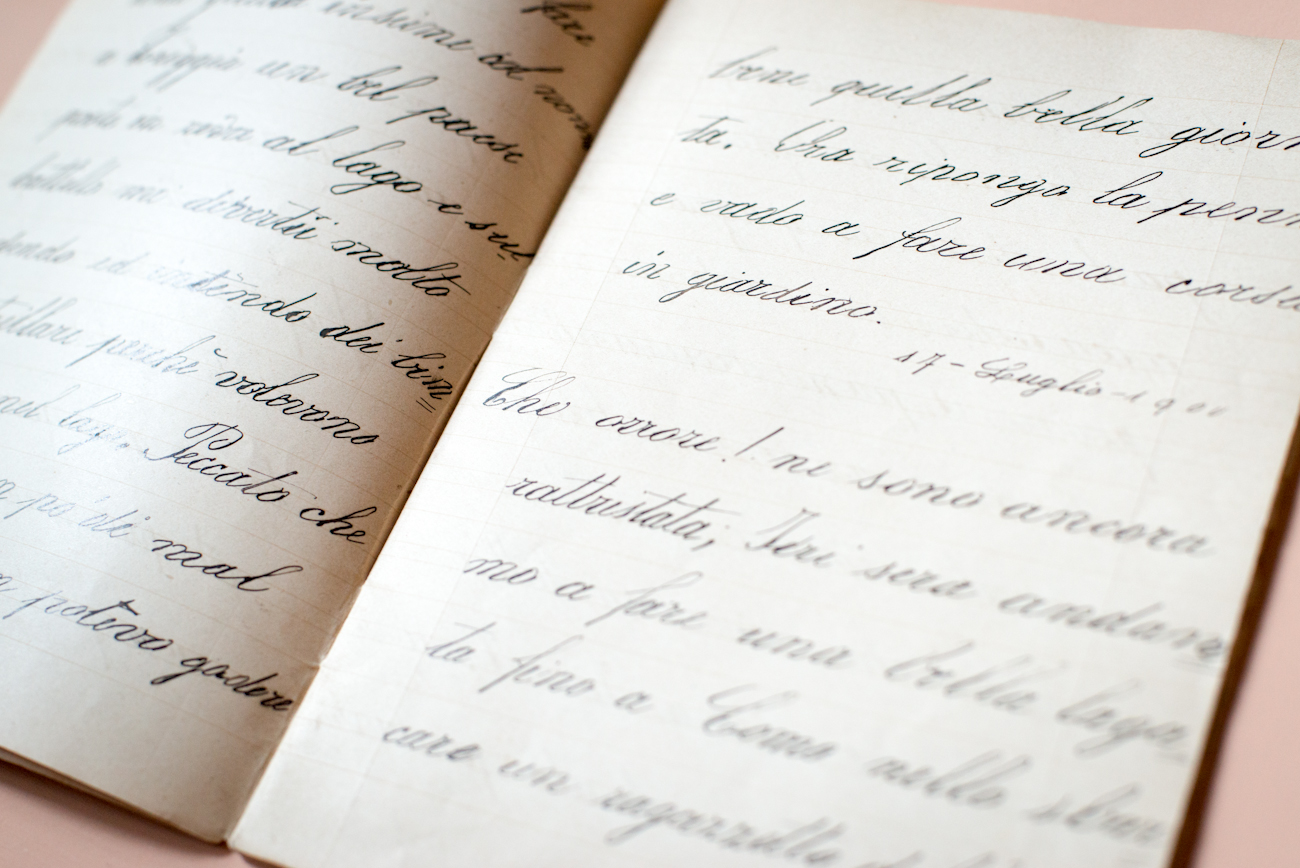 fare
insieme col nonn
a Viaggio un bel paese
posto in riva al lago e sul
battello mi divertii molto
ed sentendo dei bim=
strillare perchè volevano
nel lago. Peccato che
po' di mal
potevo godere
bene quella bella giorn
ta. Ora ripongo la penn
e vado a fare una corsa
in giardino.
17-Luglio-1900
Che orrore! ne sono ancora
rattristata; Ieri sera andam=
mo a fare una bella laga
ta fino a Como nello sbar
care un ragazzetto